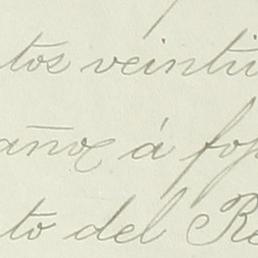 tos veintiu
años á fo
to del Re